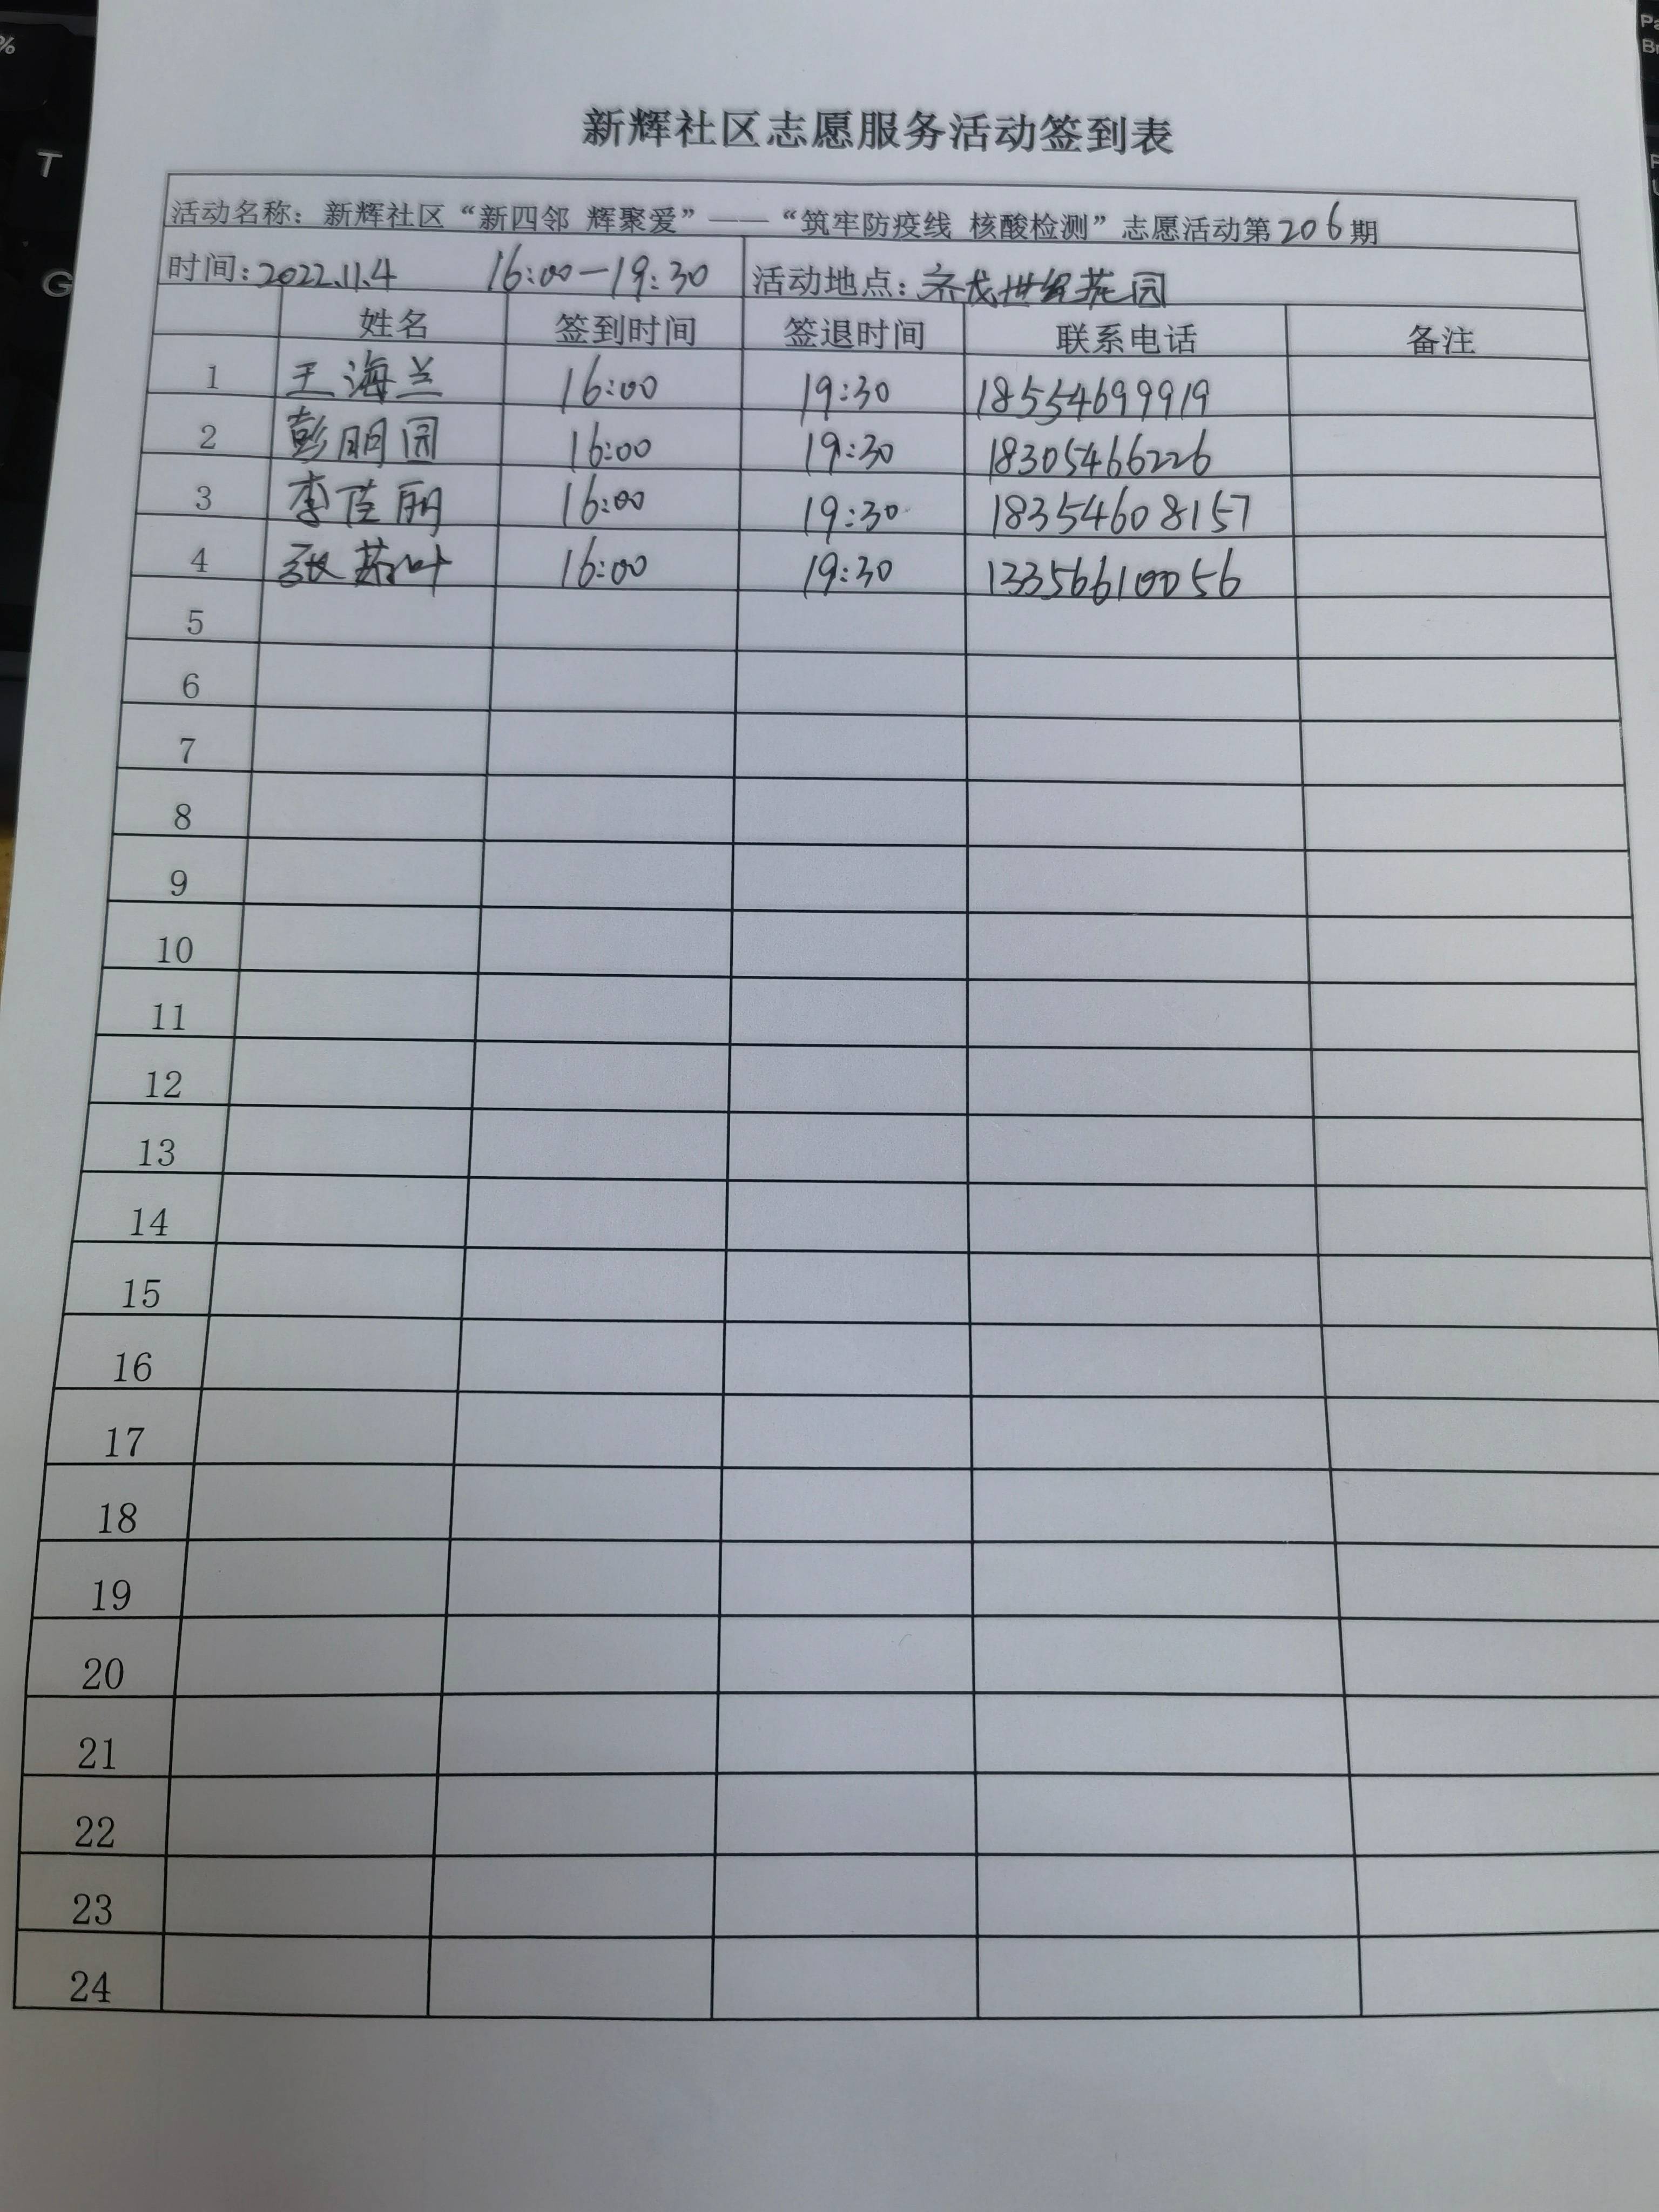 新辉社区志愿服务活动签到表
活动名称：新辉社区“新四邻 辉聚爱”——“筑牢防疫线 核酸检测”志愿活动第206期
时间：2022.11.4 16:00—19:30 活动地点：世纪花园
姓名 签到时间 签退时间 联系电话 备注
1 王海兰 16:00 19:30 18554699919
2 彭明园 16:00 19:30 18305466226
3 李佳丽 16:00 19:30 18354608157
4 张叶 16:00 19:30 13356610056
5
6
7
8
9
10
11
12
13
14
15
16
17
18
19
20
21
22
23
24
%
T
G